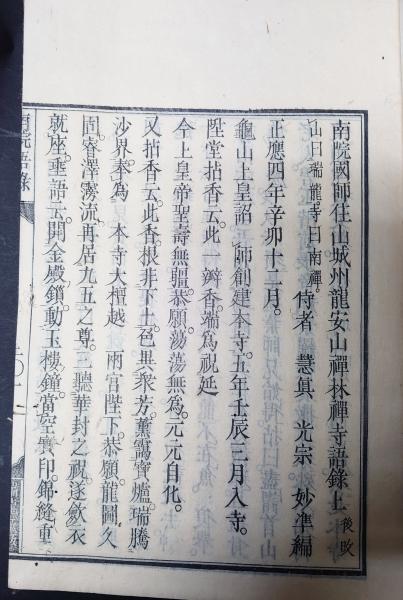 南院國師住山城州龍安山禪林禪寺語錄上後改
山曰瑞龍寺曰南禪 侍者 慧眞 光宗 妙準編
正應四年辛卯十二月。
龜山上皇詔 師創建本寺。五年壬辰三月入寺。
陞堂拈香云。此一瓣香。端爲祝延
今上皇帝聖壽無疆。恭願。蕩蕩無爲。元元自化。
又拈香云。此香。根非下土。芭異衆芳。薰靄寶爐。瑞騰
沙界。奉爲 本寺大檀越 兩宮陛下。恭願。龍圖久
固。睿澤霶流。再居九五之尊。三聽華封之祝。遂斂衣
就座。垂語云。開金殿鎖。動玉樓鐘。當空寶印。錦縫重
院語錄